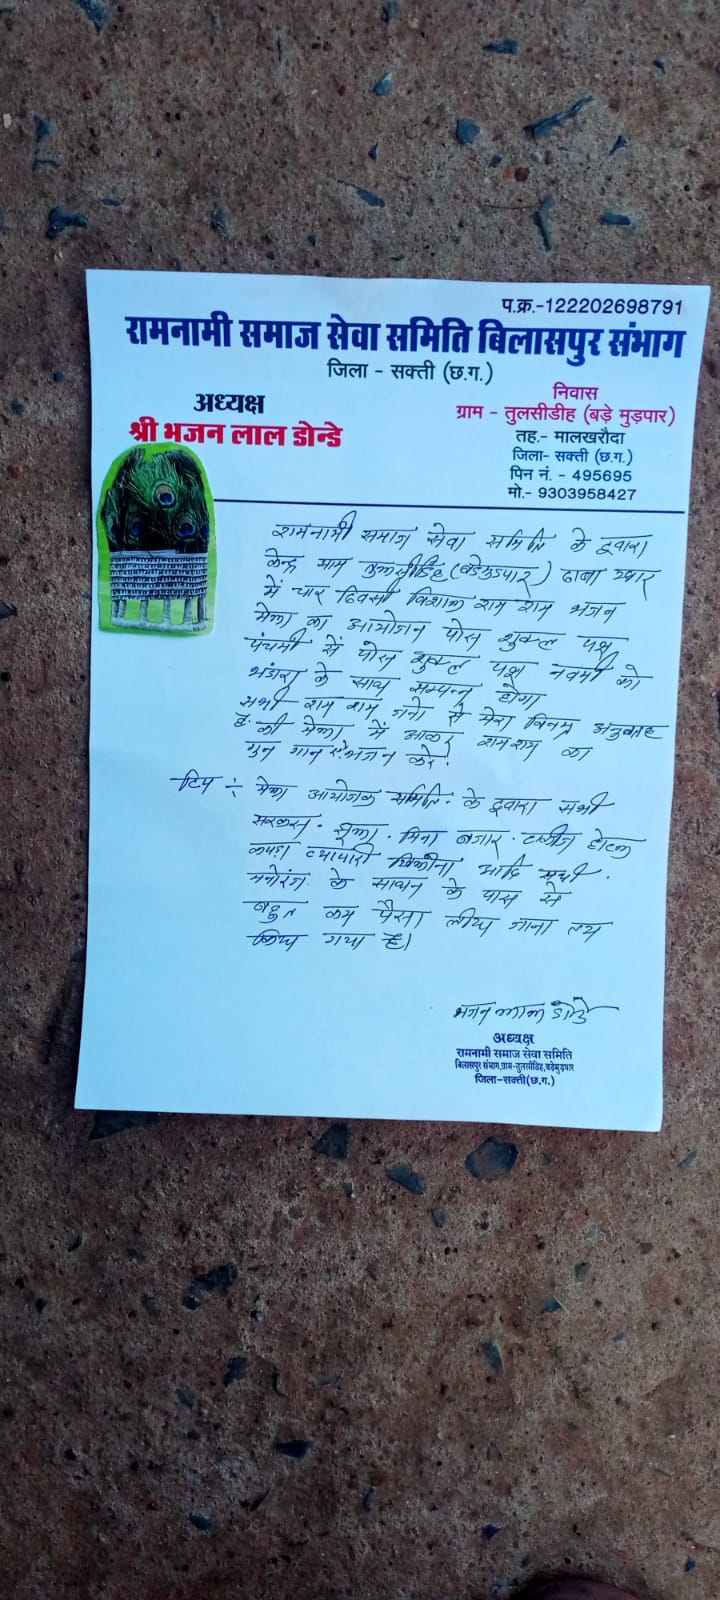 प.क्र.-122202698791
रामनामी समाज सेवा समिति बिलासपुर संभाग
जिला - सक्ती (छ.ग.)
अध्यक्ष
श्री भजन लाल डोन्डे
निवास
ग्राम - तुलसीडीह (बड़े मुड़पार)
तह.- मालखरौदा
जिला- सक्ती (छ.ग.)
पिन नं. - 495695
मो.- 9303958427
रामनामी समाज सेवा समिति के द्वारा
केन्द्र ग्राम तुलसीडिह (बडेमुडपार)
में चार दिवसी विशाल राम राम भजन
मेला का आयोजन पोस शुक्ल पक्ष
पंचमी सें पोस शुक्ल पक्ष नवमी को
भंडारा के साथ सम्पन्न होगा
सभी राम राम जनो से मेरा विनम्र
हैं की मेला में आकर रामराम का
गुन गान भजन करें
टिप ÷ मेला आयोजक समिति के द्वारा सभी
सरकस - झूला - मिना बजार - होटल
कपड़ा व्यापारी आदि सभी
मनोरंज के साधन के पास से
बहुत कम पैसा लीय जाना तय
किय गया है।
भजन लाल डोंडे
अध्यक्ष
रामनामी समाज सेवा समिति
बिलासपुर संभाग,ग्राम-तुलसीडिह,बडेमुड़पार
जिला-सक्ती(छ.ग.)